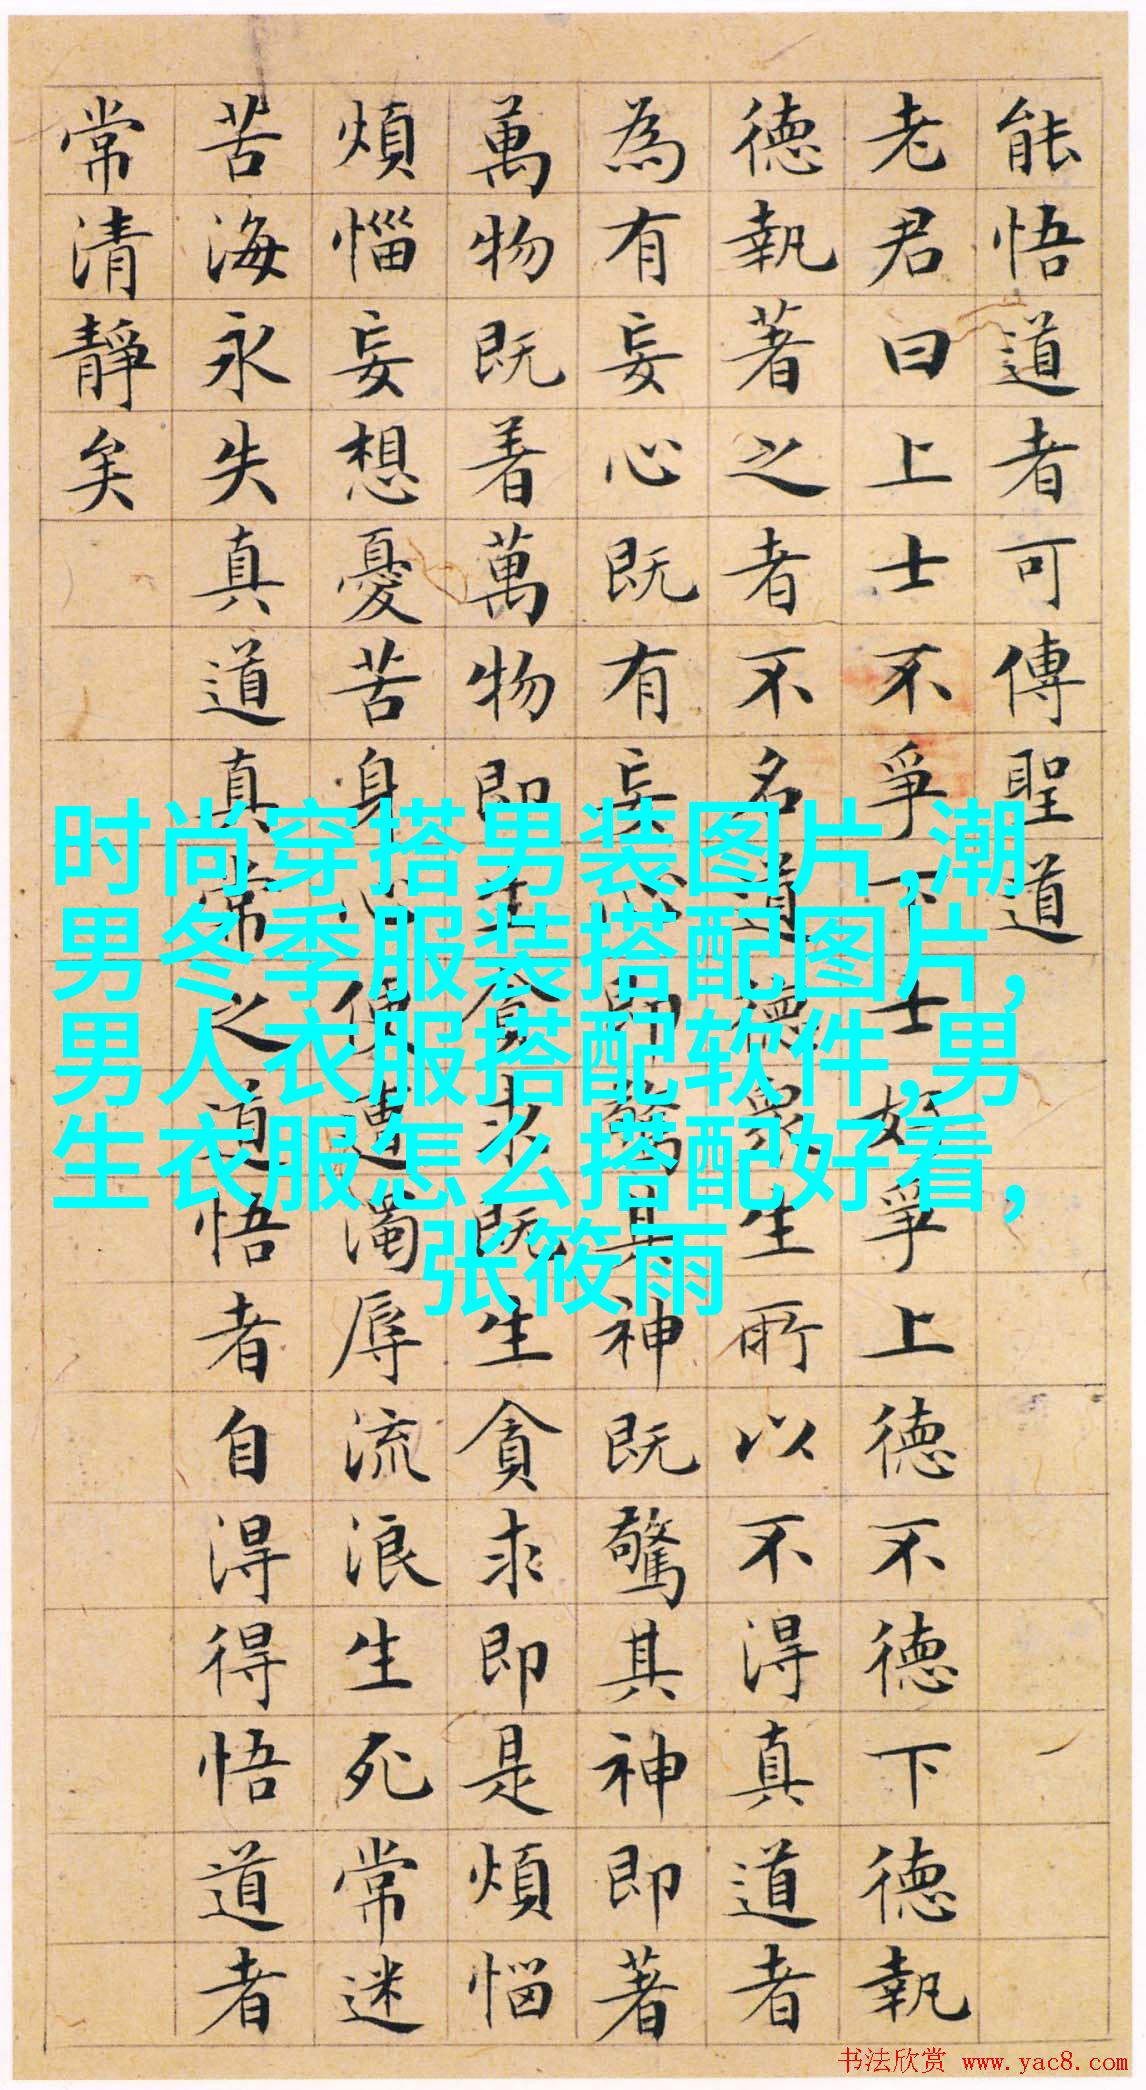 能悟道者可傳聖道
老君曰上士不爭下士好爭上德不德下德執
德執著之者不名道德眾生所以不淂真道者
為有妄心既有妄心即驚其神既驚其神即著
萬物既着萬物即生貪求既生貪求即是煩惱
煩惱妄想憂苦身心便遭濁辱流浪生死常迷
苦海永失真道真常之道悟者自淂得悟道者
常清靜矣
时尚穿搭男装图片,潮
男冬季服装搭配图片,
男人衣服搭配软件,男
生衣服怎么搭配好看,
张筱雨
书法欣赏 www.yac8.com